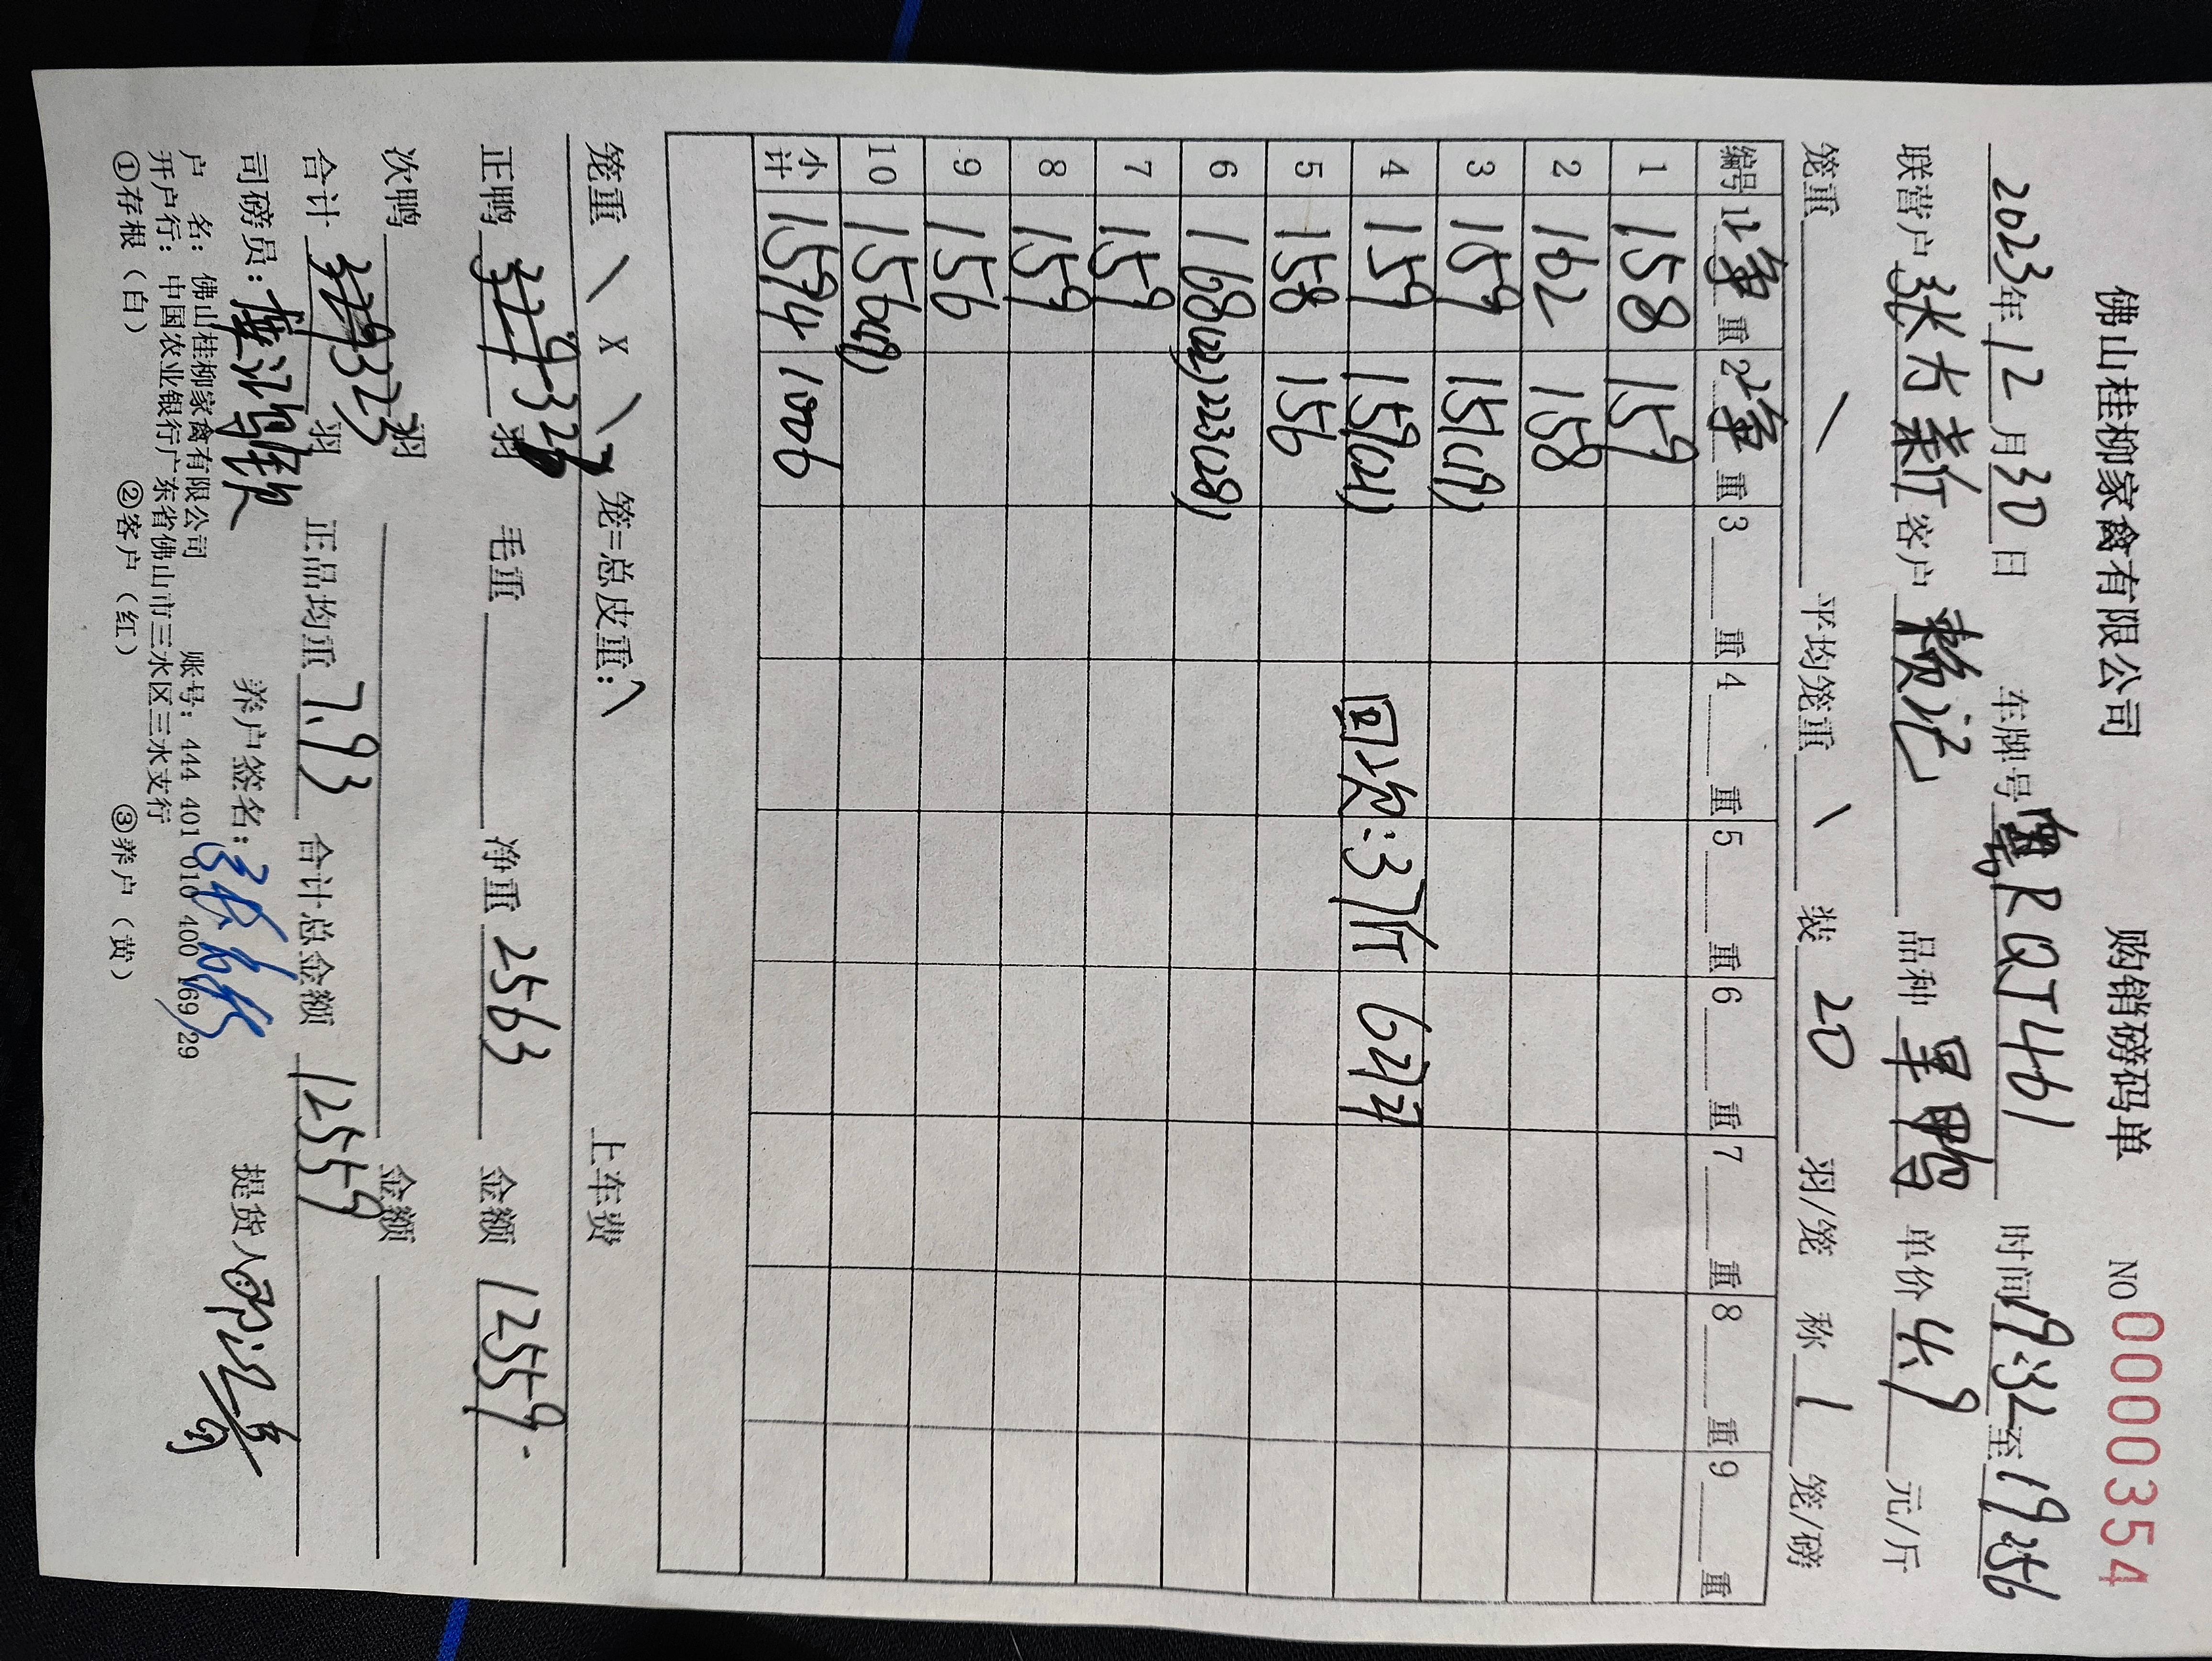 佛山桂柳家禽有限公司 购销磅码单 NO 0000354
2023年12月30日 车牌号粤RQT461 时间19:32至19:56
联营户 客户 赖记 品种 单价4.9元/斤
笼重 \ 平均笼重 \ 装20羽/笼 称1笼/磅
编号 1净重 2净重 3重 4重 5重 6重 7重 8重 9重
1 158 159
2 162 158
3 159 151(19)
4 159 159(21) 回次:37斤 6只
5 158 156
6 168(22) 223(28)
7 159
8 159
9 156
10 156(19)
小计 1594 1006
笼重 \ X \ 笼=总皮重: \ 上车费
正鸭 323羽 毛重 净重2563 金额12559.
次鸭 羽 金额
合计 323羽 正品均重7.93 合计总金额12559
司磅员: 养户签名: 提货人
户 名: 佛山桂柳家禽有限公司 账号: 444 401 010 400 169 29
开户行: 中国农业银行广东省佛山市三水区三水支行
①存根（白） ②客户（红） ③养户（黄）